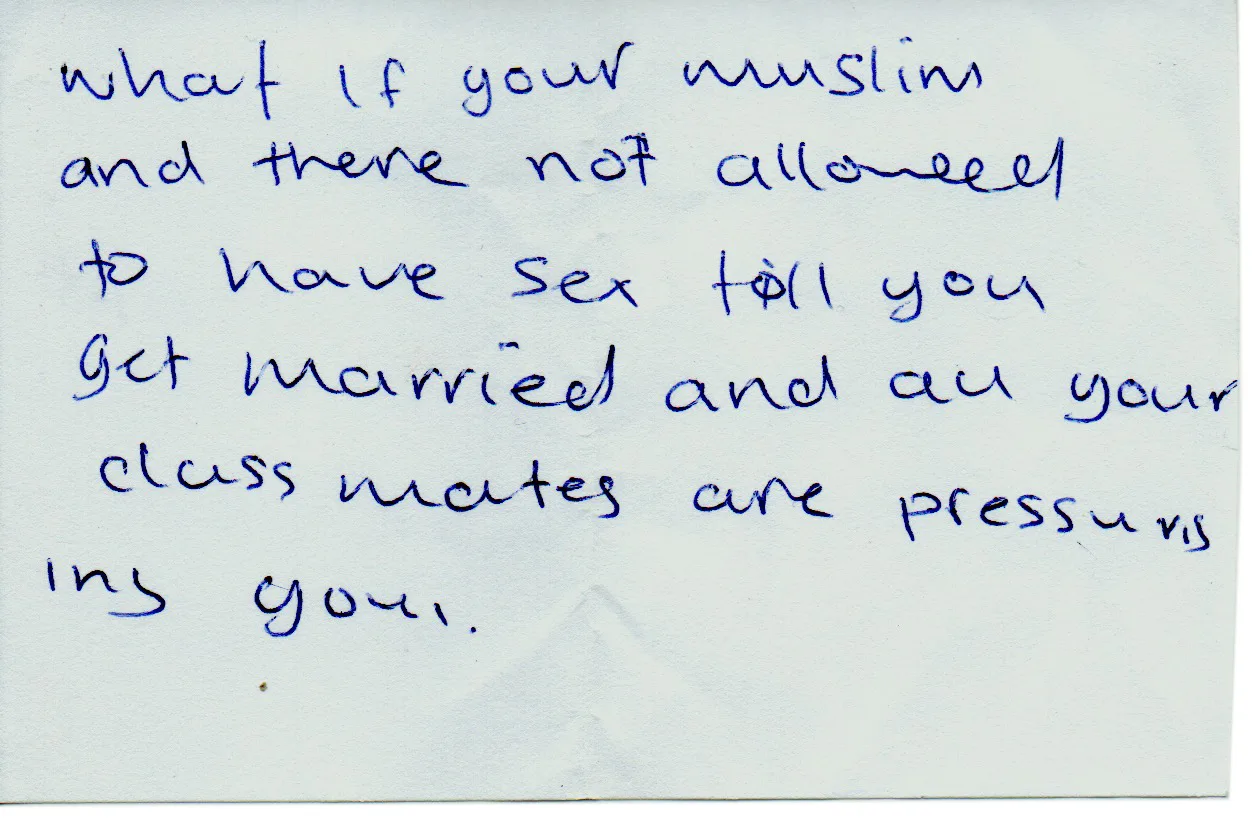 what if your muslim
and there not allowed
to have sex till you
get married and all your
class mates are pressuris
ing you.